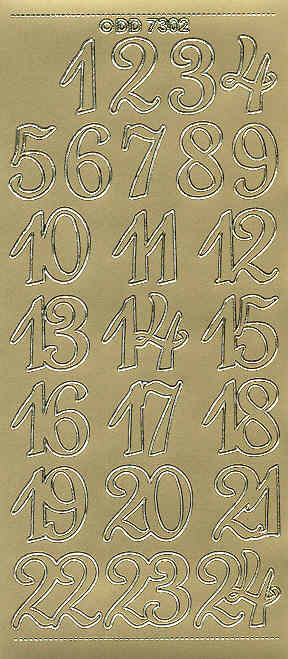 © DD 7302
1 2 3 4
5 6 7 8 9
10 11 12
13 14 15
16 17 18
19 20 21
22 23 24